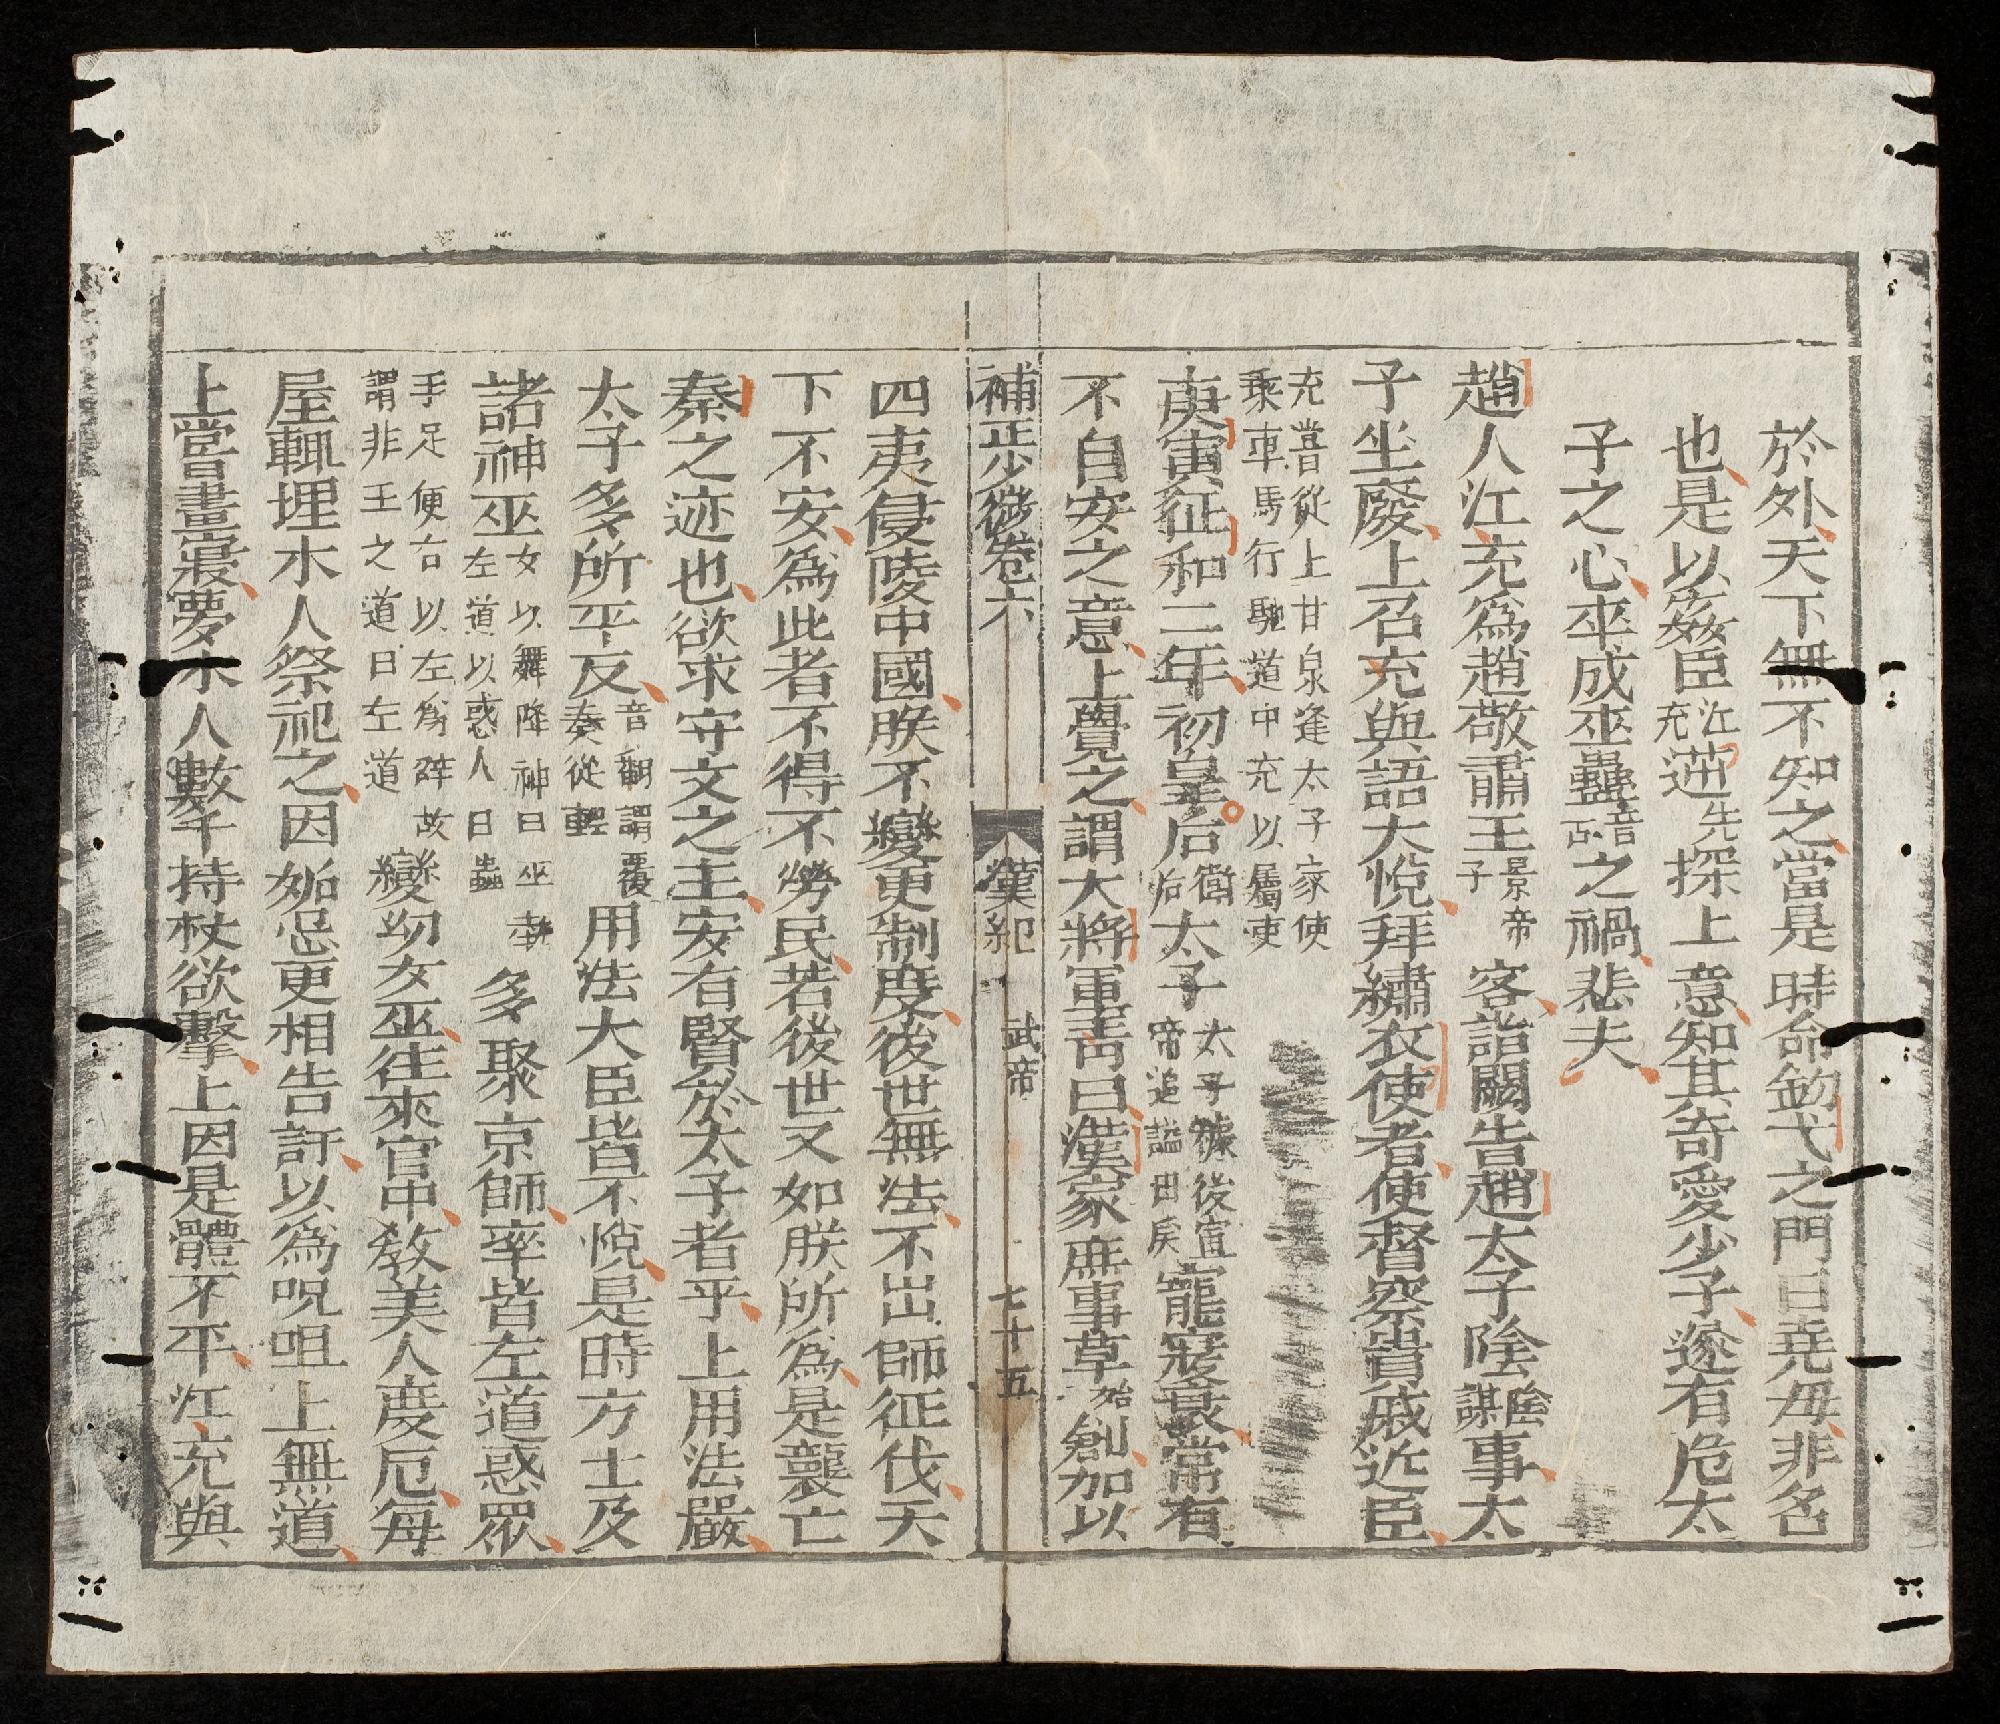 於外天下無不知之當是時命鉤弋之門曰堯母非名
也是以姦臣江充逆先探上意知其奇愛少子遂有危太
子之心卒成巫蠱音古之禍悲夫
趙人江充爲趙敬肅王景帝子客詣闕告趙太子陰陰謀事太
子坐廢上召充與語大悅拜繡衣使者使督察貴戚近臣
充嘗從上甘泉逢太子家使
乘車馬行馳道中充以屬吏
庚寅征和二年初皇后衛后太子太子據後宣帝追謚曰戾寵寖衰常有
不自安之意上覺之謂大將軍青曰漢家庶事草始創加以
補正少微卷六 漢紀 武帝 七十五
四夷侵陵中國朕不變更制度後世無法不出師征伐天
下不安爲此者不得不勞民若後世又如朕所爲是襲亡
秦之迹也欲求守文之主安有賢於太子者乎上用法嚴
太子多所平反音翻謂覆奏從輕用法大臣皆不悅是時方士及
諸神巫女以舞降神曰巫執左道以惑人曰蠱多聚京師率皆左道惑眾
手足便右以左爲僻故謂非王之道曰左道變幻女巫往來宮中教美人度厄每
屋輒埋木人祭祀之因妬忌更相告訐以爲呪咀上無道
上嘗晝寢夢木人數千持杖欲擊上因是體不平江充與